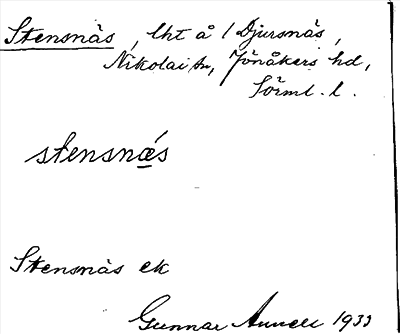 Stensnäs, lht å 1 Djursnäs,
Nikolai sn, Jönåkers hd,
Sörml. l.
stensnǽs
Stensnäs ek
Gunnar 1933